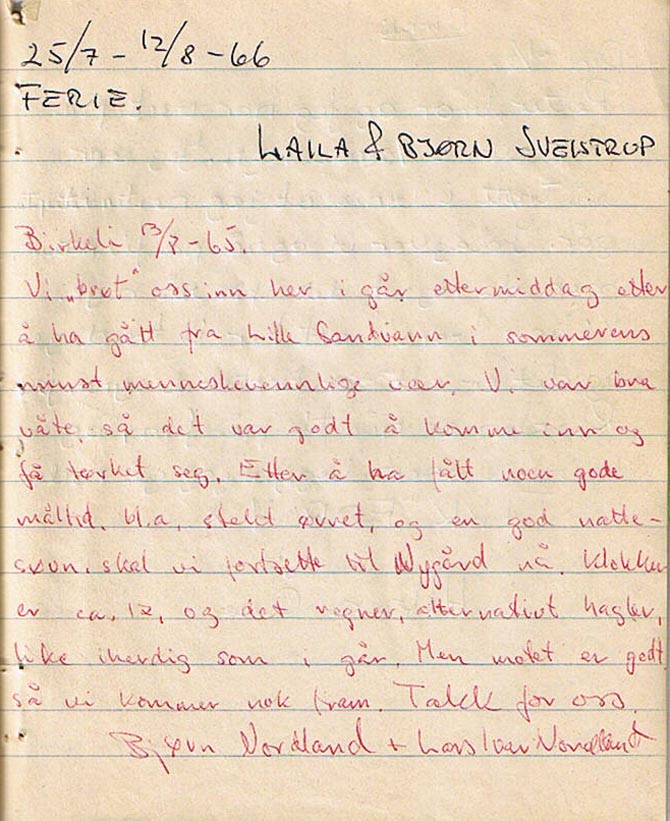 25/7 - 12/8 - 66
FERIE.
LAILA & BJØRN SVELSTRUP
Birkeli 13/8 - 65.
Vi „brøt" oss inn her i går ettermiddag etter
å ha gått fra Lille Sandvann i sommerens
minst menneskevennlige vær. Vi var bra
våte, så det var godt å komme inn og
få tørket seg. Etter å ha fått noen gode
måltid, bl.a. stekt ørret, og en god natte-
søvn, skal vi fortsette til Nygård nå. Klokken
er ca. 12, og det regner, alternativt hagler,
like iherdig som i går. Men motet er godt
så vi kommer nok fram. Takk for oss.
Bjørn Nordland + Lars Ivar Nordland